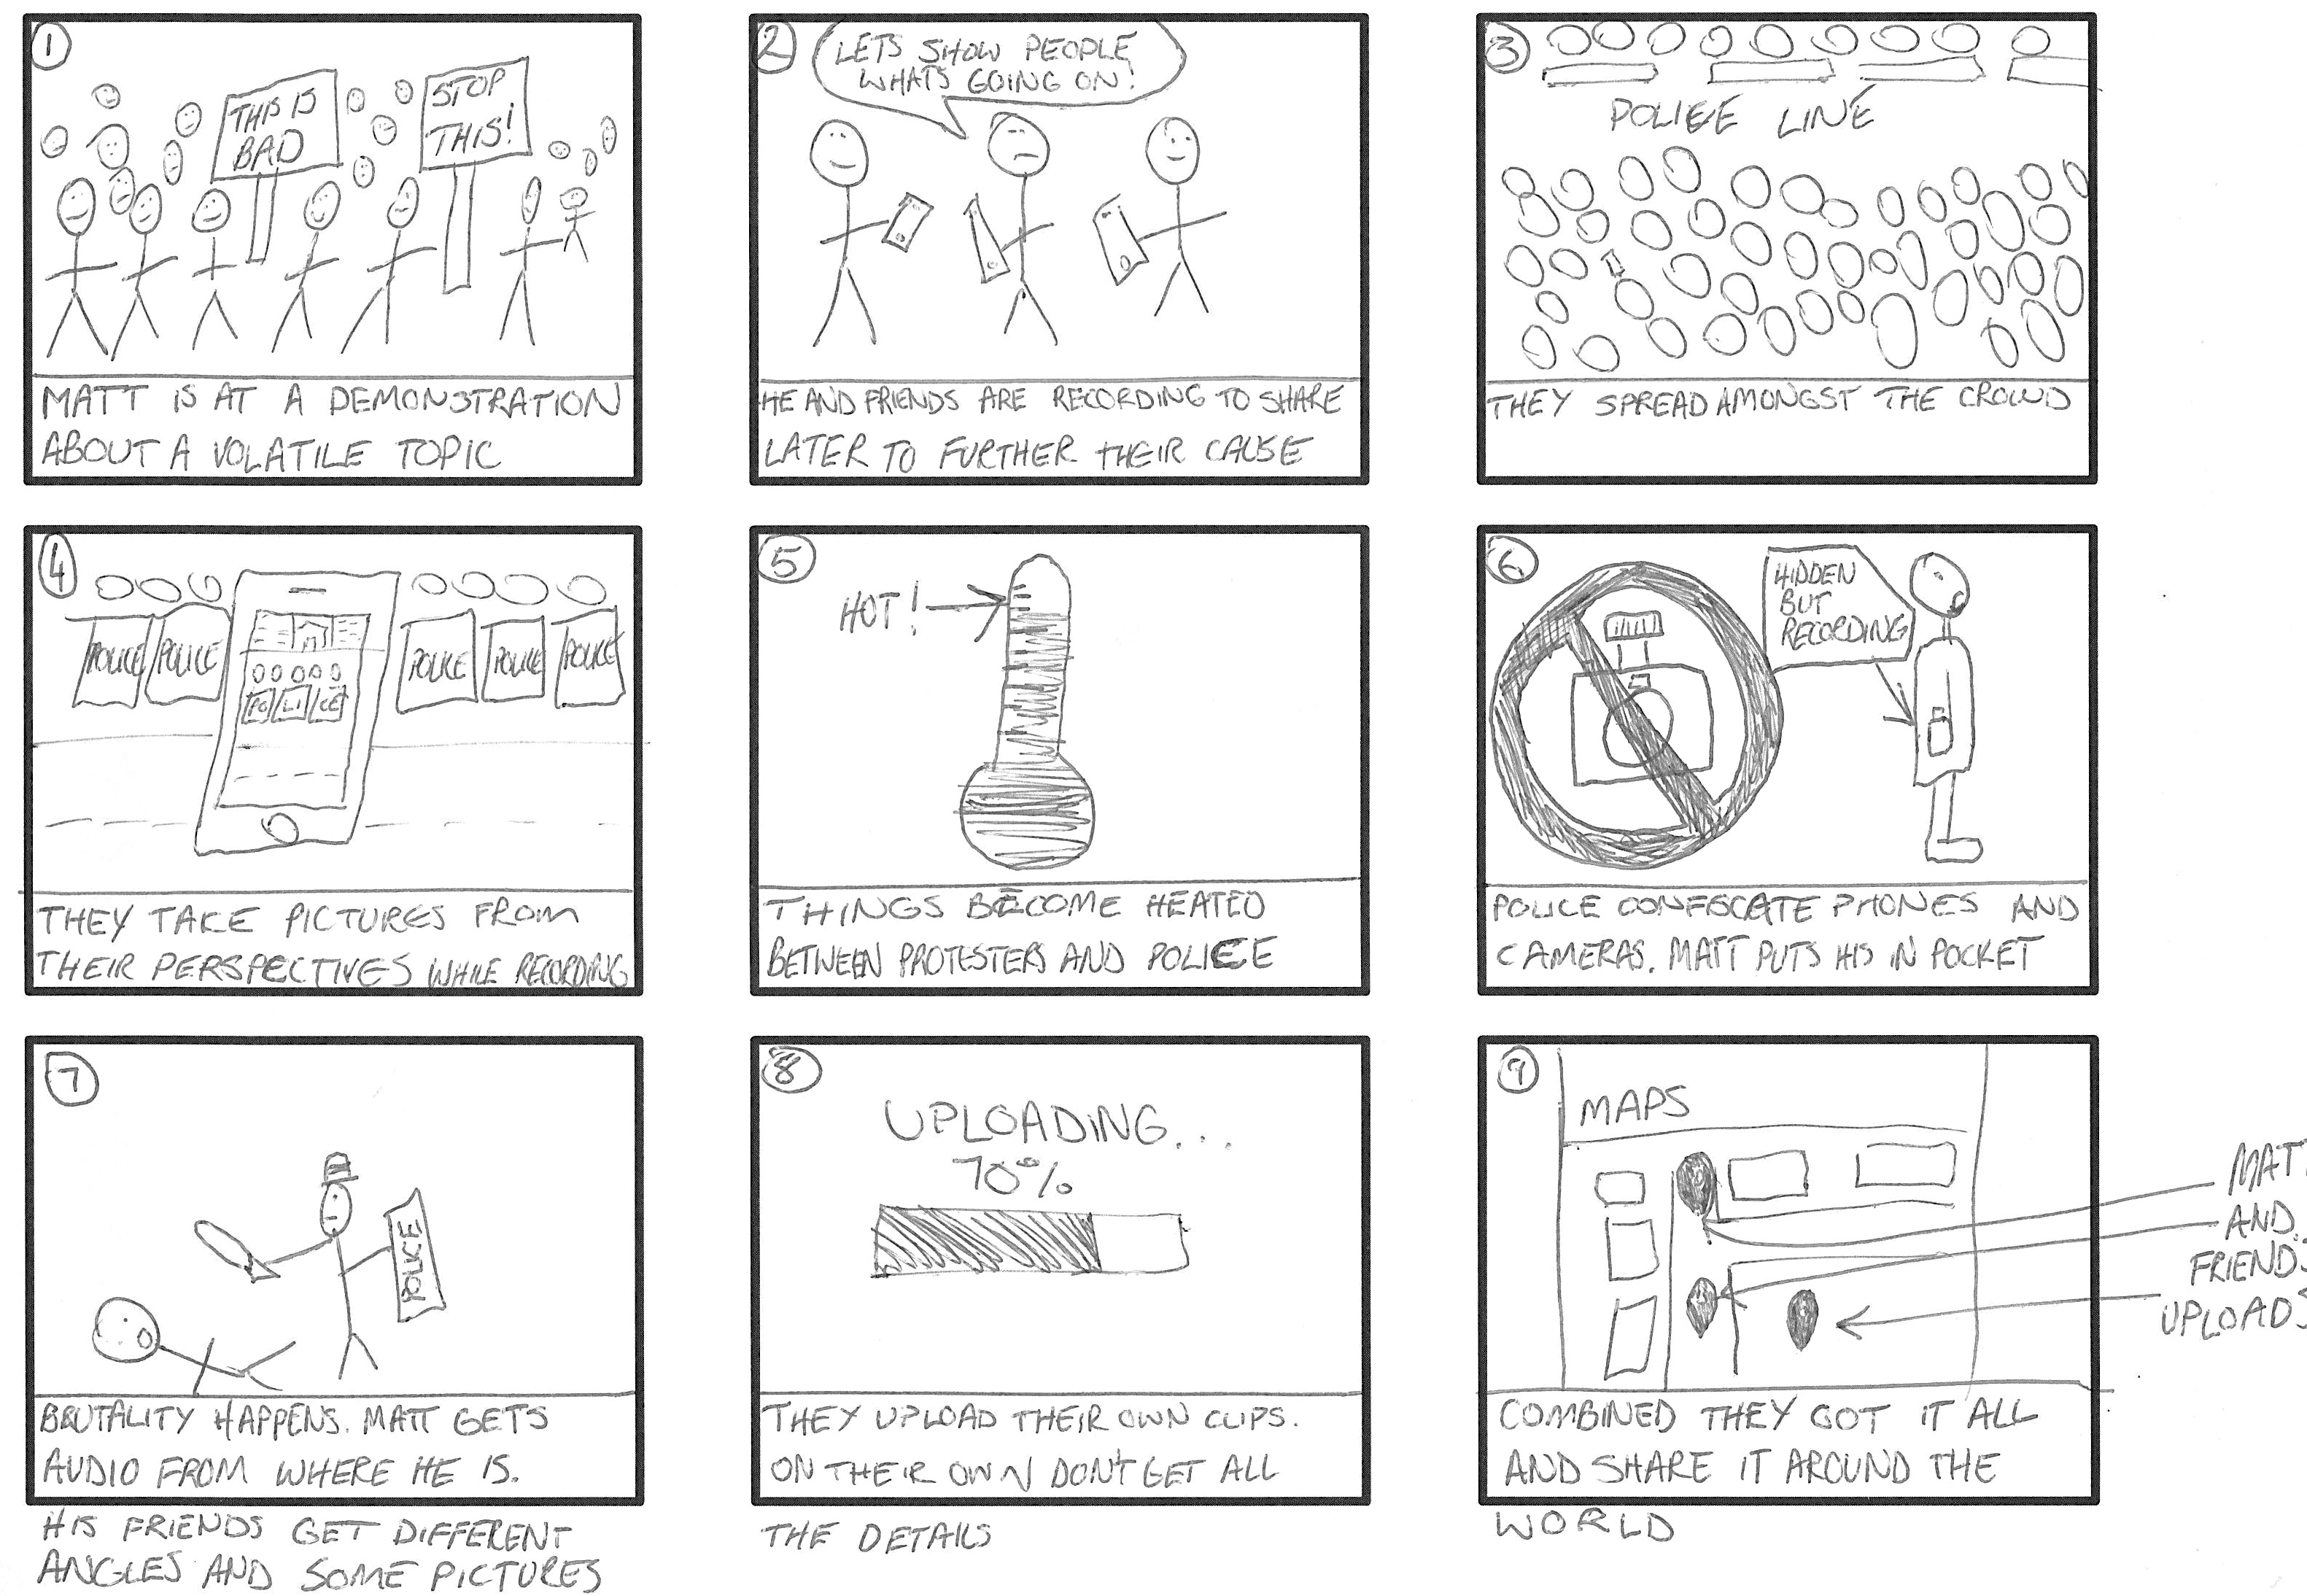 1
THIS IS
BAD
STOP
THIS!
MATT IS AT A DEMONSTRATION
ABOUT A VOLATILE TOPIC
2
LETS SHOW PEOPLE
WHATS GOING ON!
HE AND FRIENDS ARE RECORDING TO SHARE
LATER TO FURTHER THEIR CAUSE
3
POLICE LINE
THEY SPREAD AMONGST THE CROWD
4
POLICE POLICE POLICE POLICE POLICE
PO LI CE
THEY TAKE PICTURES FROM
THEIR PERSPECTIVES WHILE RECORDING
5
HOT!
THINGS BECOME HEATED
BETWEEN PROTESTERS AND POLICE
6
HIDDEN
BUT
RECORDING
POLICE CONFISCATE PHONES AND
CAMERAS. MATT PUTS HIS IN POCKET
7
POLICE
BRUTALITY HAPPENS. MATT GETS
AUDIO FROM WHERE HE IS.
HIS FRIENDS GET DIFFERENT
ANGLES AND SOME PICTURES
8
UPLOADING...
70%
THEY UPLOAD THEIR OWN CLIPS.
ON THEIR OWN DON'T GET ALL
THE DETAILS
9
MAPS
MATT
AND
FRIENDS
UPLOADS
COMBINED THEY GOT IT ALL
AND SHARE IT AROUND THE
WORLD